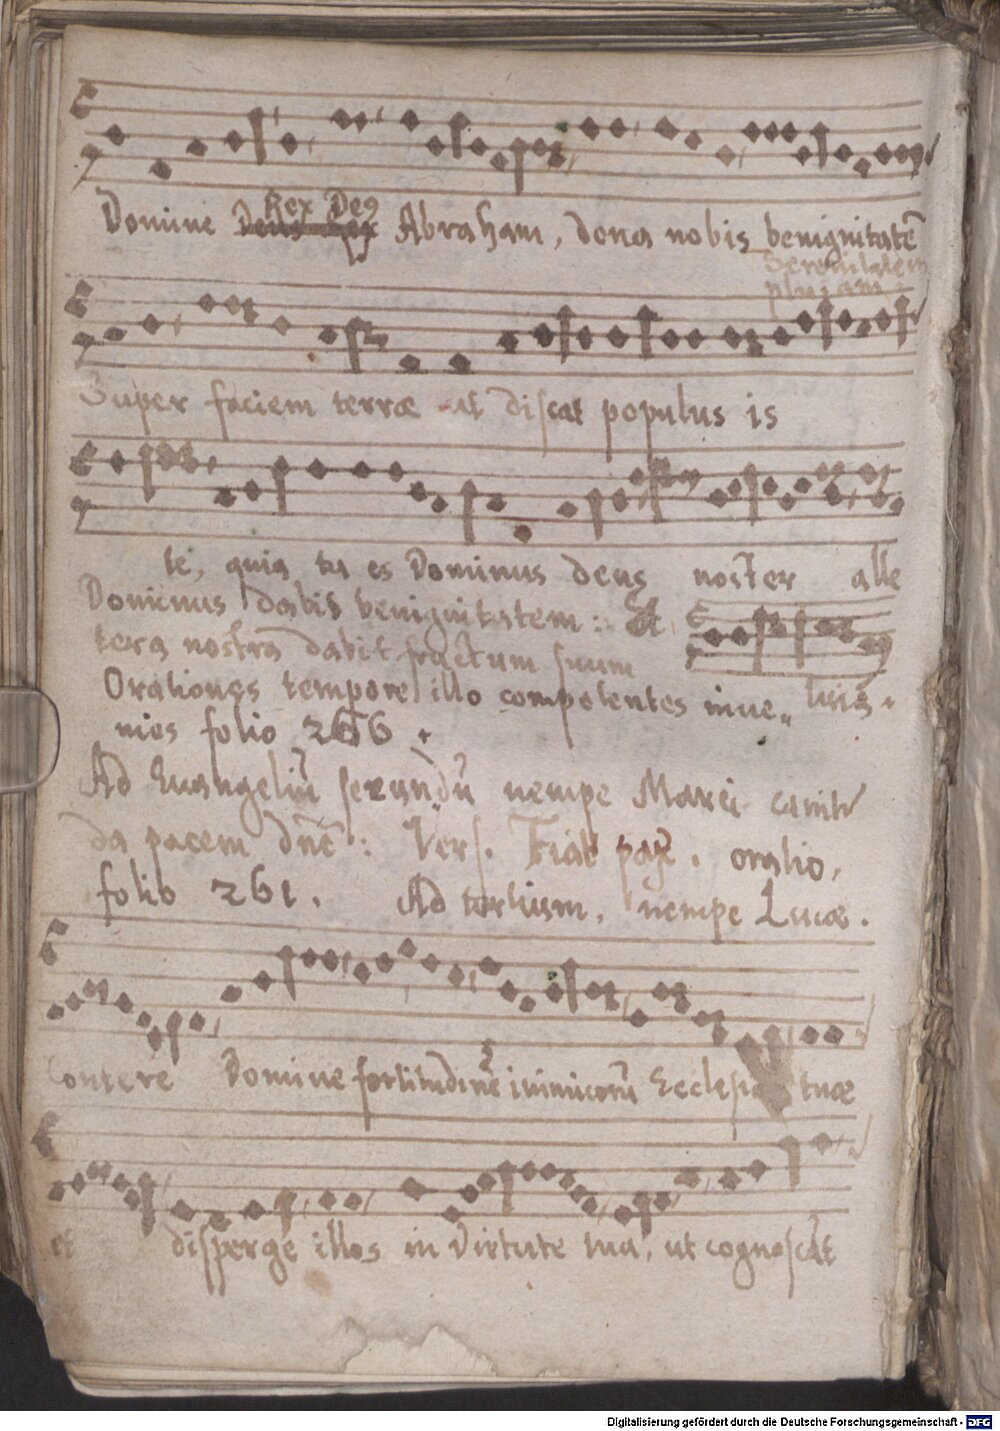 Rex Deg
Domine Abraham, dona nobis benignitatē
Serenitatem
pluiam.
Super faciem terræ ut discat populus is
te, quia tu es Dominus deus noster alle
Dominus dabit benignitatem: Et
tera nostra dabit fructum suum
luia.
Orationes tempore illo competentes inue„
nies folio 266.
Ad Euangeliū secundū nempe Marci canitr
da pacem dnē: Vers. Fiat pax. oratio,
folio 261. Ad tertium, nempe Lucæ.
Contere Domine fortitudinē inimicorū Ecclesiæ tuæ
et disperge illos in virtute tua, ut cognoscāt
Digitalisierung gefördert durch die Deutsche Forschungsgemeinschaft - DFG